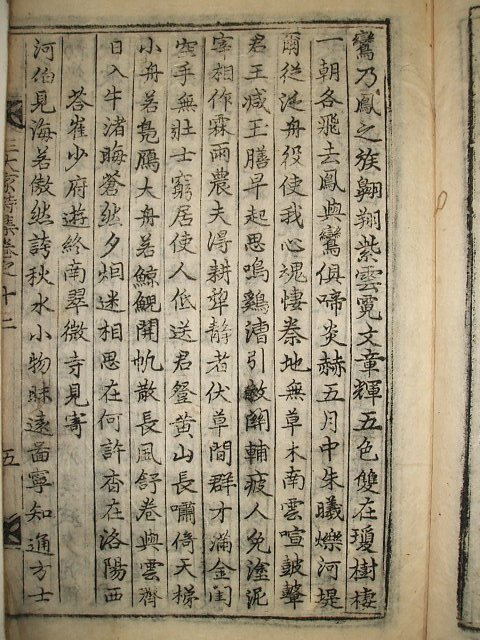 鸞乃鳳之族翺翔紫雲霓文章輝五色雙在瓊樹棲
一朝各飛去鳳與鸞俱啼炎赫五月中朱曦爍河堤
爾從泛舟役使我心魂悽秦地無草木南雲喧鼓鼙
君王减玉膳早起思鳴鷄漕引救關輔疲人免塗泥
宰相作霖雨農夫得耕犂靜者伏草間群才滿金閨
空手無壯士窮居使人低送君登黄山長嘯倚天梯
小舟若鳧鴈大舟若鯨鯢開帆散長風舒卷與雲齊
日入牛渚晦蒼然夕烟迷相思在何許杳在洛陽西
答崔少府遊終南翠微寺見寄
河伯見海若傲然誇秋水小物昧遠圖寧知通方士
家詩集卷之十二
五